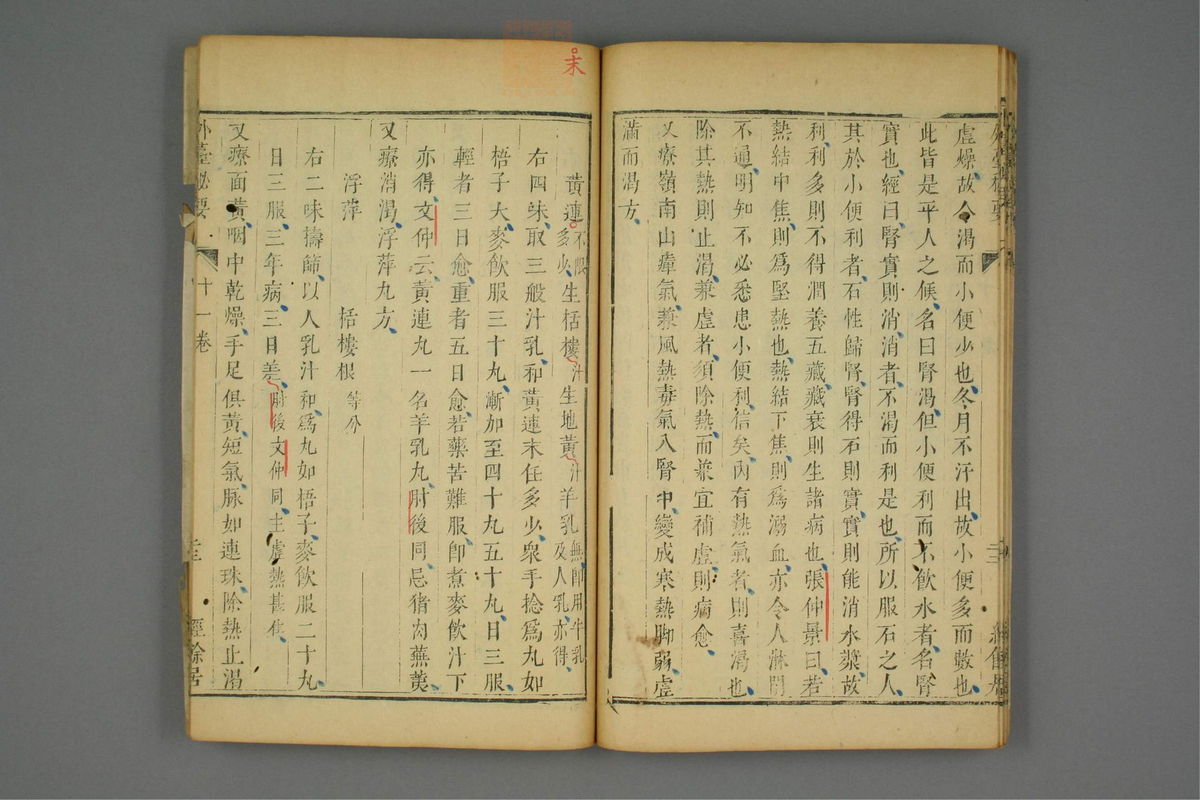 虛燥故令渴而小便少也冬月不汗出故小便多而數也
此皆是平人之候名曰腎渴但小便利而不飲水者名腎
實也經曰腎實則消消者不渴而利是也所以服石之人
其於小便利者石性歸腎腎得石則實實則能消水漿故
利利多則不得潤養五藏藏衰則生諸病也張仲景曰若
熱結中焦則爲堅熱也熱結下焦則爲溺血亦令人淋閉
不通明知不必悉患小便利信矣內有熱氣者則喜渴也
除其熱則止渴兼虛者須除熱而兼宜補虛則病愈
又療嶺南山瘴氣兼風熱毒氣入腎中變成寒熱脚弱虛
滿而渴方
末
黃連不限多少生栝樓汁生地黃汁羊乳無卽用牛乳及人乳亦得
右四味取三般汁乳和黃連末任多少衆手捻爲丸如
梧子大麥飲服三十丸漸加至四十丸五十丸日三服
輕者三日愈重者五日愈若藥苦難服卽煮麥飲汁下
亦得文仲云黃連丸一名羊乳丸肘後同忌猪肉蕪荑
又療消渴浮萍丸方
浮萍 栝樓根等分
右二味擣篩以人乳汁和爲丸如梧子麥飲服二十丸
日三服三年病三日差肘後文仲同主虛熱甚佳
又療面黃咽中乾燥手足俱黃短氣脉如連珠除熱止渴
外臺秘要 十一卷 經餘居